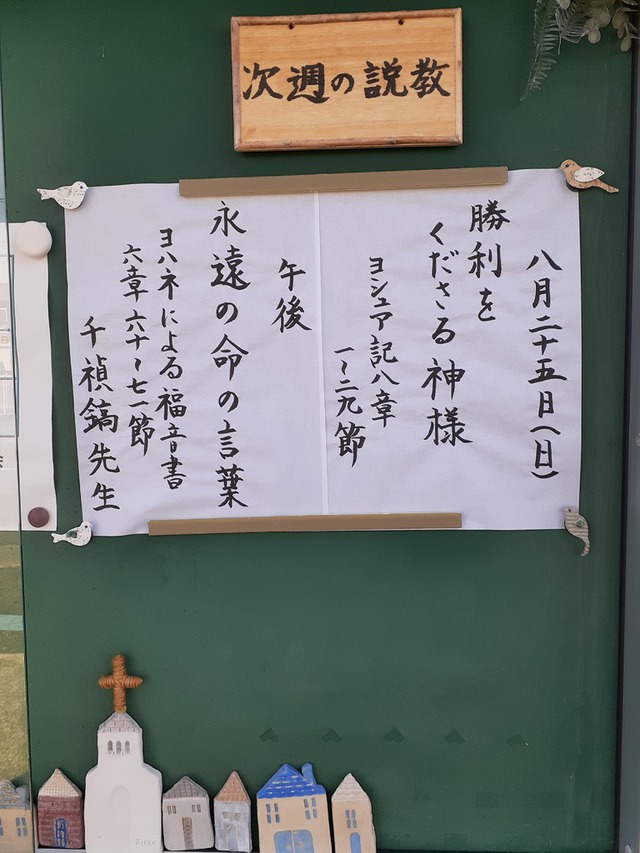 次週の説教
八月二十五日(日)
勝利を
くださる神様
ヨシュア記八章
一〜二九節
午後
永遠の命の言葉
ヨハネによる福音書
六章六十〜七一節
千禎鎬先生